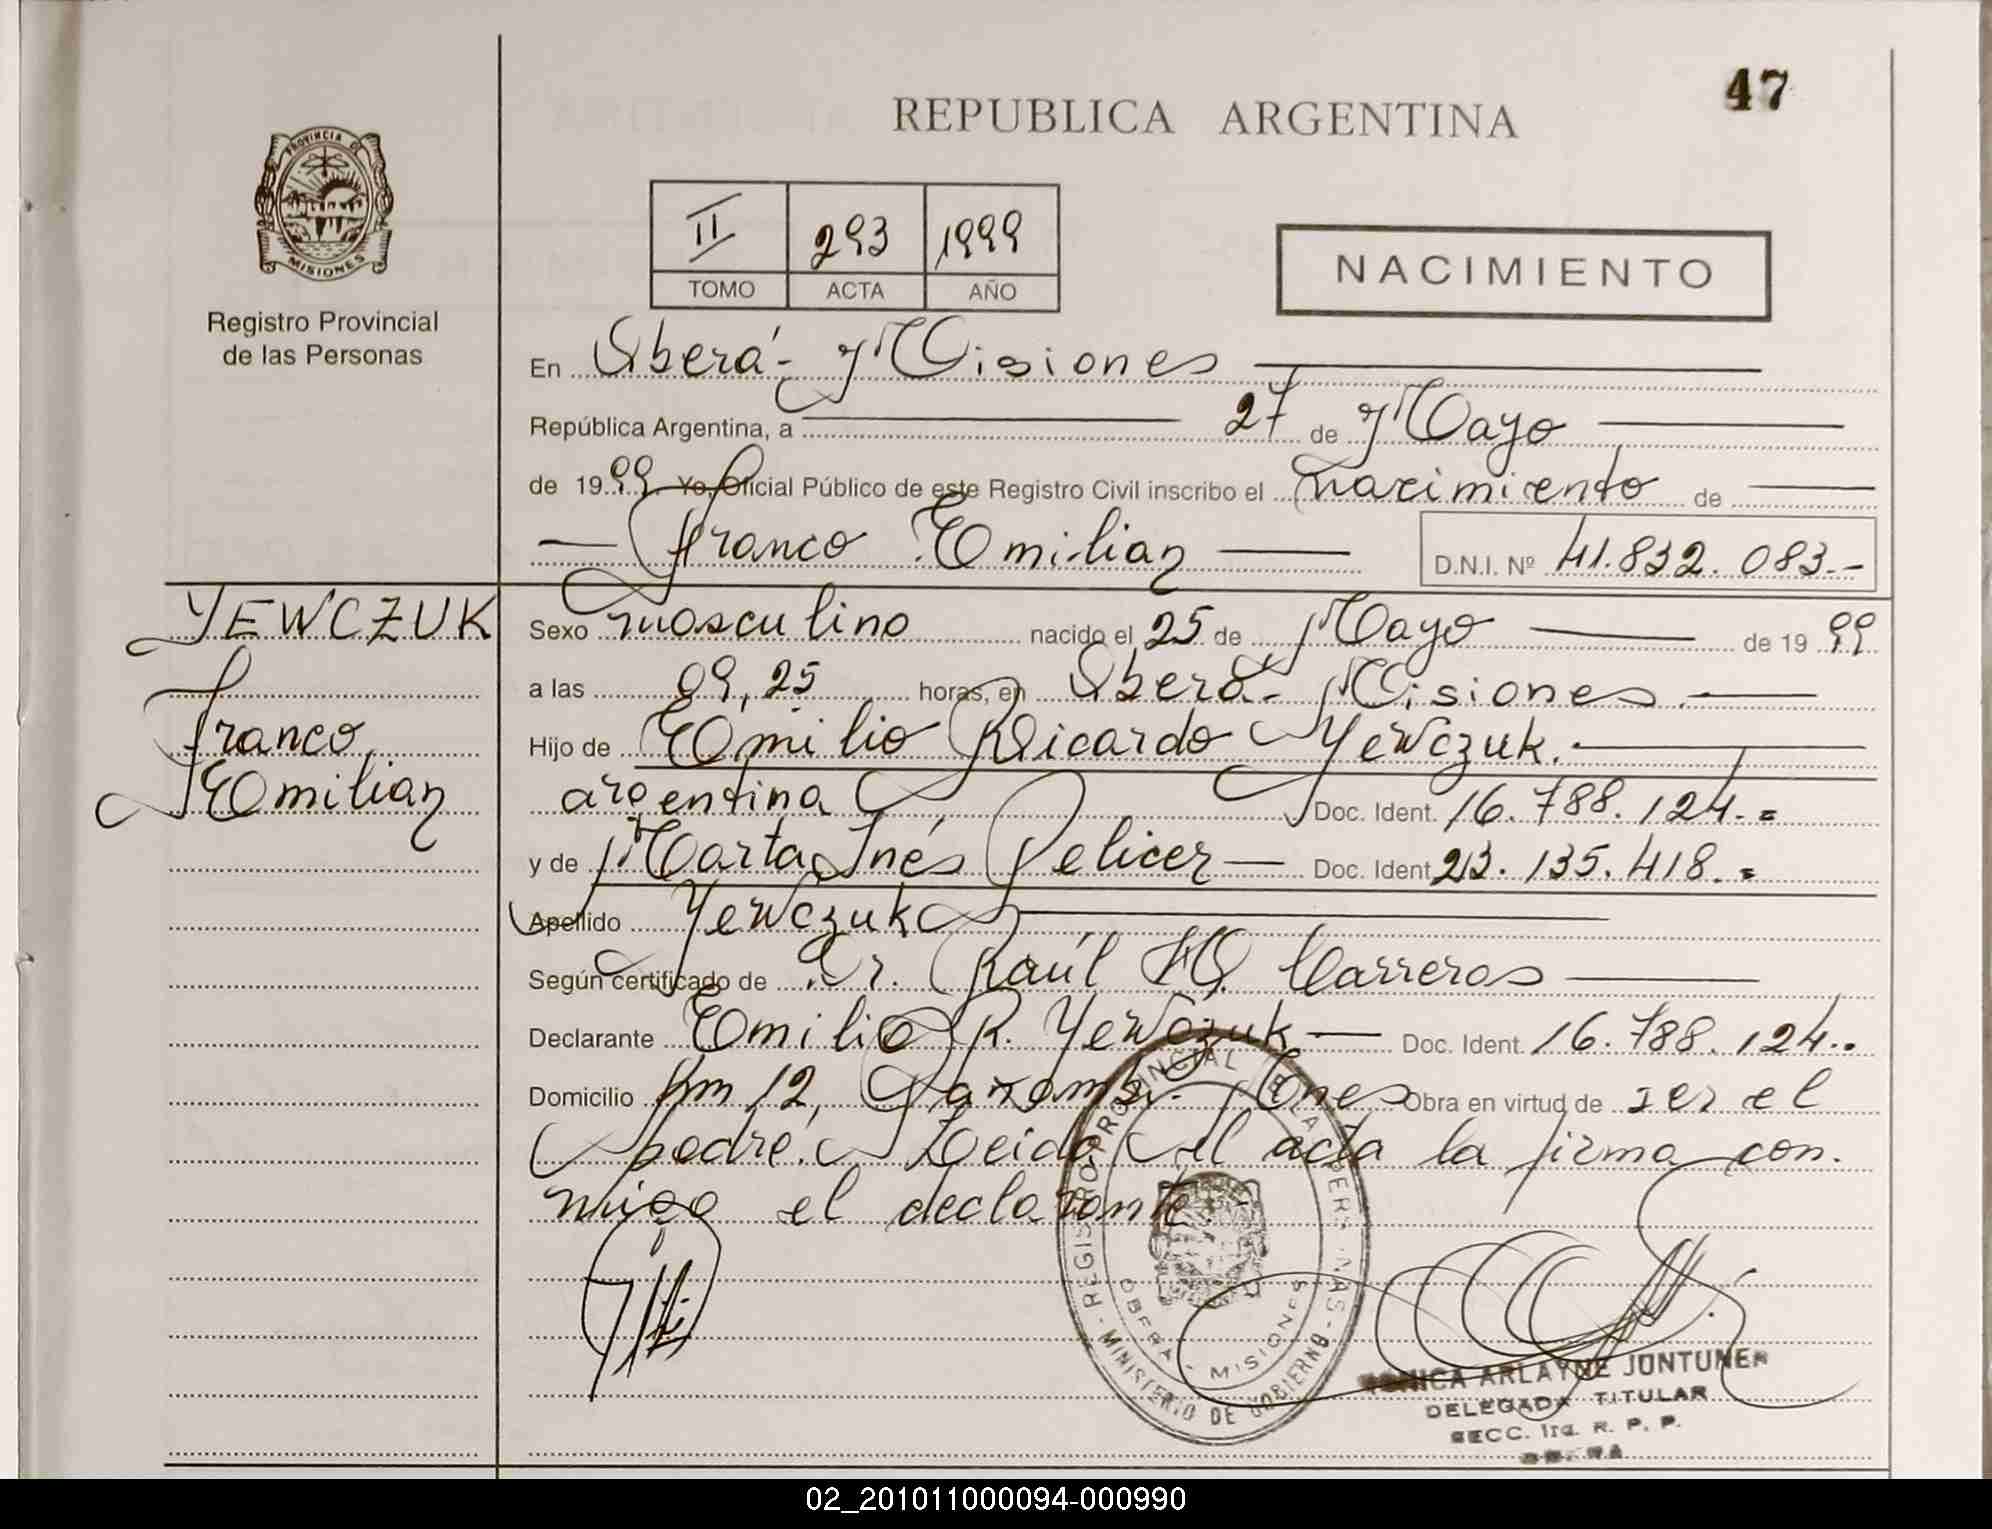 47
REPUBLICA ARGENTINA
PROVINCIA DE
MISIONES
Registro Provincial
de las Personas
II 293 1999
TOMO ACTA AÑO
NACIMIENTO
En Oberá - Misiones
República Argentina, a 27 de Mayo
de 1999. Yo, Oficial Público de este Registro Civil inscribo el nacimiento de
Franco Emilian D.N.I. Nº 41.832.083.-
YEWCZUK
Franco
Emilian
Sexo masculino nacido el 25 de Mayo de 1999
a las 09,25 horas, en Oberá - Misiones.
Hijo de Emilio Ricardo Yewczuk.
argentina Doc. Ident. 16.788.124.=
y de Marta Inés Pelicer Doc. Ident. 23.135.418.=
Apellido Yewczuk
Según certificado de Dr. Raúl Carreros
Declarante Emilio R. Yewczuk Doc. Ident. 16.788.124..
Domicilio km 12, Panambí - Mnes Obra en virtud de ser el
padre. Leida el acta la firma con.
migo el declarante.
REGISTRO PROVINCIAL DE LAS PERSONAS - MINISTERIO DE GOBIERNO -
OBERA - MISIONES
MONICA ARLAYNE JONTUNEN
DELEGADA TITULAR
SECC. 1ra. R. P. P.
OBERA
02_201011000094-000990